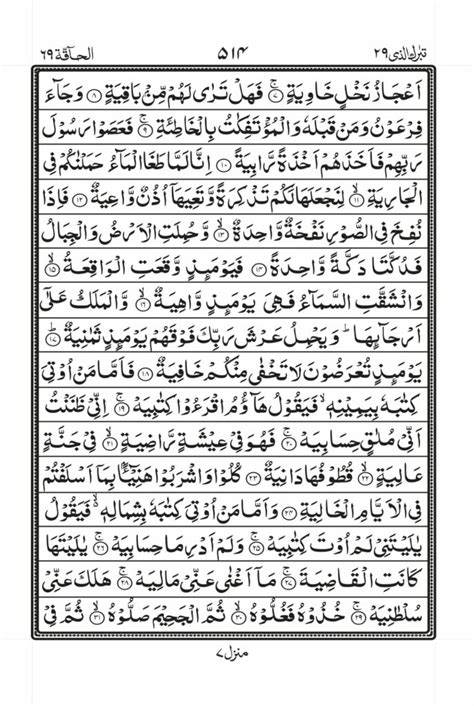 تبٰرك الذی ۲۹ ۵۱۴ الحآقة ۶۹
اَعْجَازُ نَخْلٍ خَاوِيَةٍ ۷ فَهَلْ تَرٰى لَهُمْ مِّنْۢ بَاقِيَةٍ ۸ وَجَآءَ
فِرْعَوْنُ وَمَنْ قَبْلَهٗ وَالْمُؤْتَفِكٰتُ بِالْخَاطِئَةِ ۹ فَعَصَوْا رَسُوْلَ
رَبِّهِمْ فَاَخَذَهُمْ اَخْذَةً رَّابِيَةً ۱۰ اِنَّا لَمَّا طَغَا الْمَآءُ حَمَلْنٰكُمْ فِى
الْجَارِيَةِ ۱۱ لِنَجْعَلَهَا لَكُمْ تَذْكِرَةً وَّتَعِيَهَآ اُذُنٌ وَّاعِيَةٌ ۱۲ فَاِذَا
نُفِخَ فِى الصُّوْرِ نَفْخَةٌ وَّاحِدَةٌ ۱۳ وَّحُمِلَتِ الْاَرْضُ وَالْجِبَالُ
فَدُكَّتَا دَكَّةً وَّاحِدَةً ۱۴ فَيَوْمَئِذٍ وَّقَعَتِ الْوَاقِعَةُ ۱۵
وَانْشَقَّتِ السَّمَآءُ فَهِىَ يَوْمَئِذٍ وَّاهِيَةٌ ۱۶ وَّالْمَلَكُ عَلٰٓى
اَرْجَآئِهَا ؕ وَيَحْمِلُ عَرْشَ رَبِّكَ فَوْقَهُمْ يَوْمَئِذٍ ثَمٰنِيَةٌ ۱۷
يَوْمَئِذٍ تُعْرَضُوْنَ لَا تَخْفٰى مِنْكُمْ خَافِيَةٌ ۱۸ فَاَمَّا مَنْ اُوْتِىَ
كِتٰبَهٗ بِيَمِيْنِهٖ ۙ فَيَقُوْلُ هَآؤُمُ اقْرَءُوْا كِتٰبِيَهْ ۱۹ اِنِّىْ ظَنَنْتُ
اَنِّىْ مُلٰقٍ حِسَابِيَهْ ۲۰ فَهُوَ فِىْ عِيْشَةٍ رَّاضِيَةٍ ۲۱ فِىْ جَنَّةٍ
عَالِيَةٍ ۲۲ قُطُوْفُهَا دَانِيَةٌ ۲۳ كُلُوْا وَاشْرَبُوْا هَنِيْٓئًاۢ بِمَآ اَسْلَفْتُمْ
فِى الْاَيَّامِ الْخَالِيَةِ ۲۴ وَاَمَّا مَنْ اُوْتِىَ كِتٰبَهٗ بِشِمَالِهٖ ۙ فَيَقُوْلُ
يٰلَيْتَنِىْ لَمْ اُوْتَ كِتٰبِيَهْ ۲۵ وَلَمْ اَدْرِ مَا حِسَابِيَهْ ۲۶ يٰلَيْتَهَا
كَانَتِ الْقَاضِيَةَ ۲۷ مَآ اَغْنٰى عَنِّىْ مَالِيَهْ ۲۸ هَلَكَ عَنِّىْ
سُلْطٰنِيَهْ ۲۹ خُذُوْهُ فَغُلُّوْهُ ۳۰ ثُمَّ الْجَحِيْمَ صَلُّوْهُ ۳۱ ثُمَّ فِىْ
منزل ۷